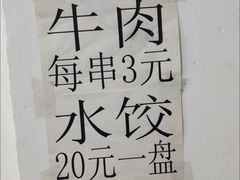 牛肉
每串3元
水饺
20元一盘